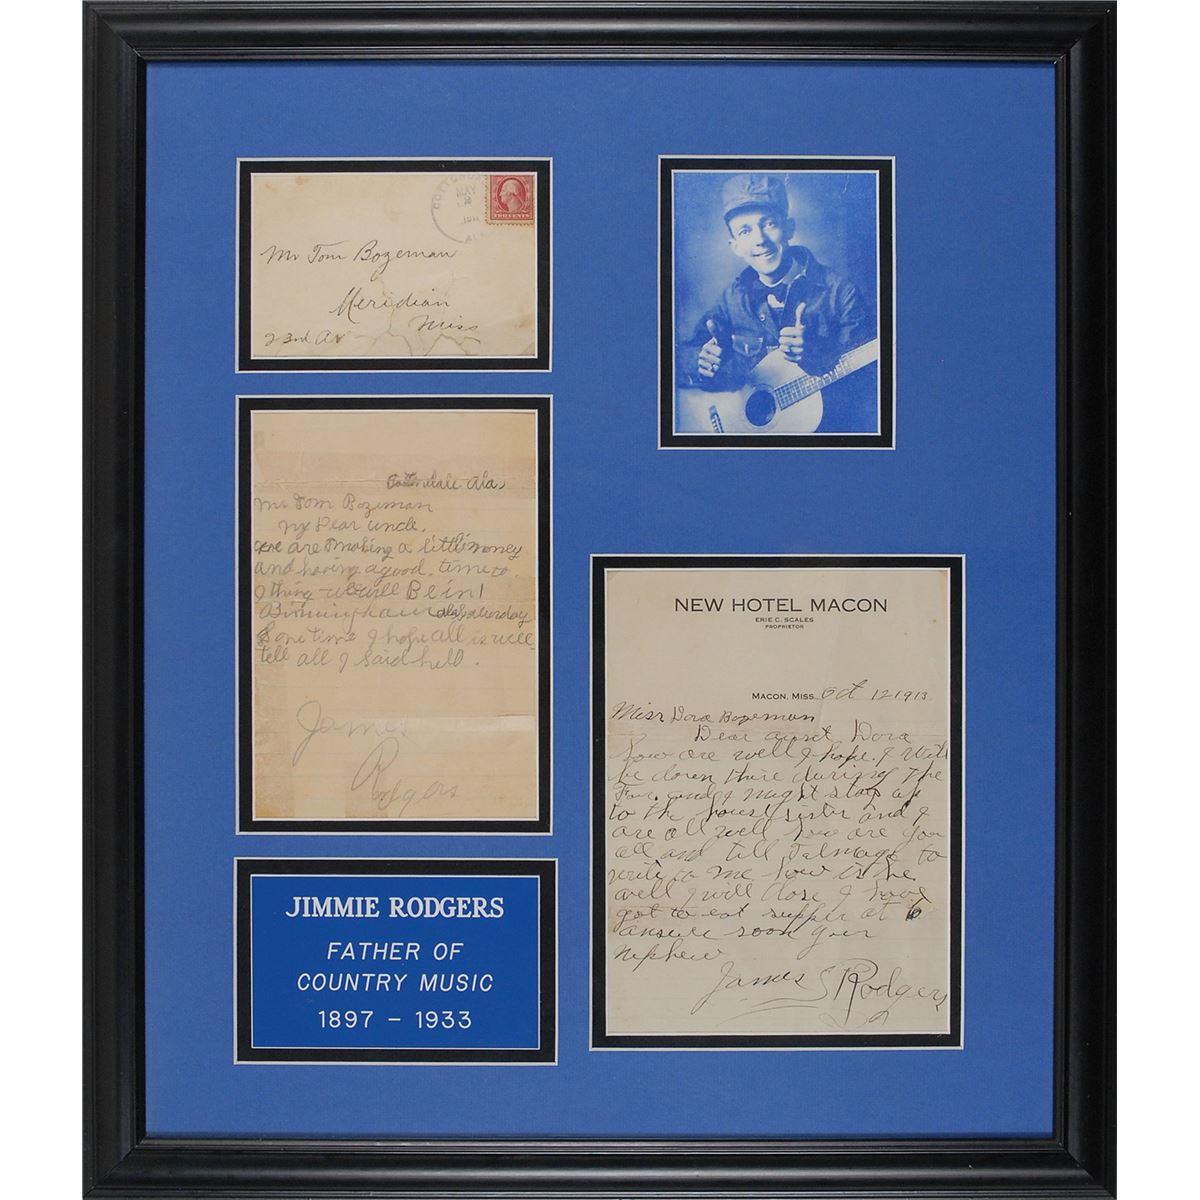 MAY
TWO CENTS
Mr Tom Bozeman
Meridian
Miss
23rd Av
Ala
Mr Tom Bozeman
My Dear uncle.
we are making a little money
and having a good time to.
I thing we will Be in
Birmingham ala saturday
Some time I hope all is well
tell all I said hell.
James
Rodgers
JIMMIE RODGERS
FATHER OF
COUNTRY MUSIC
1897 – 1933
NEW HOTEL MACON
ERIE C. SCALES
PROPRIETOR
MACON, MISS. Oct 12 1913
Miss Dora Bozeman
Dear aunt Dora
how are well I hope. I will
be down there during the
Fair and I might stop up
to the house sister and I
are all well how are you
all and till Talmage to
write to me how is he
well I will close I have
got to eat supper at 6
answer soon your
nephew
James Rodgers